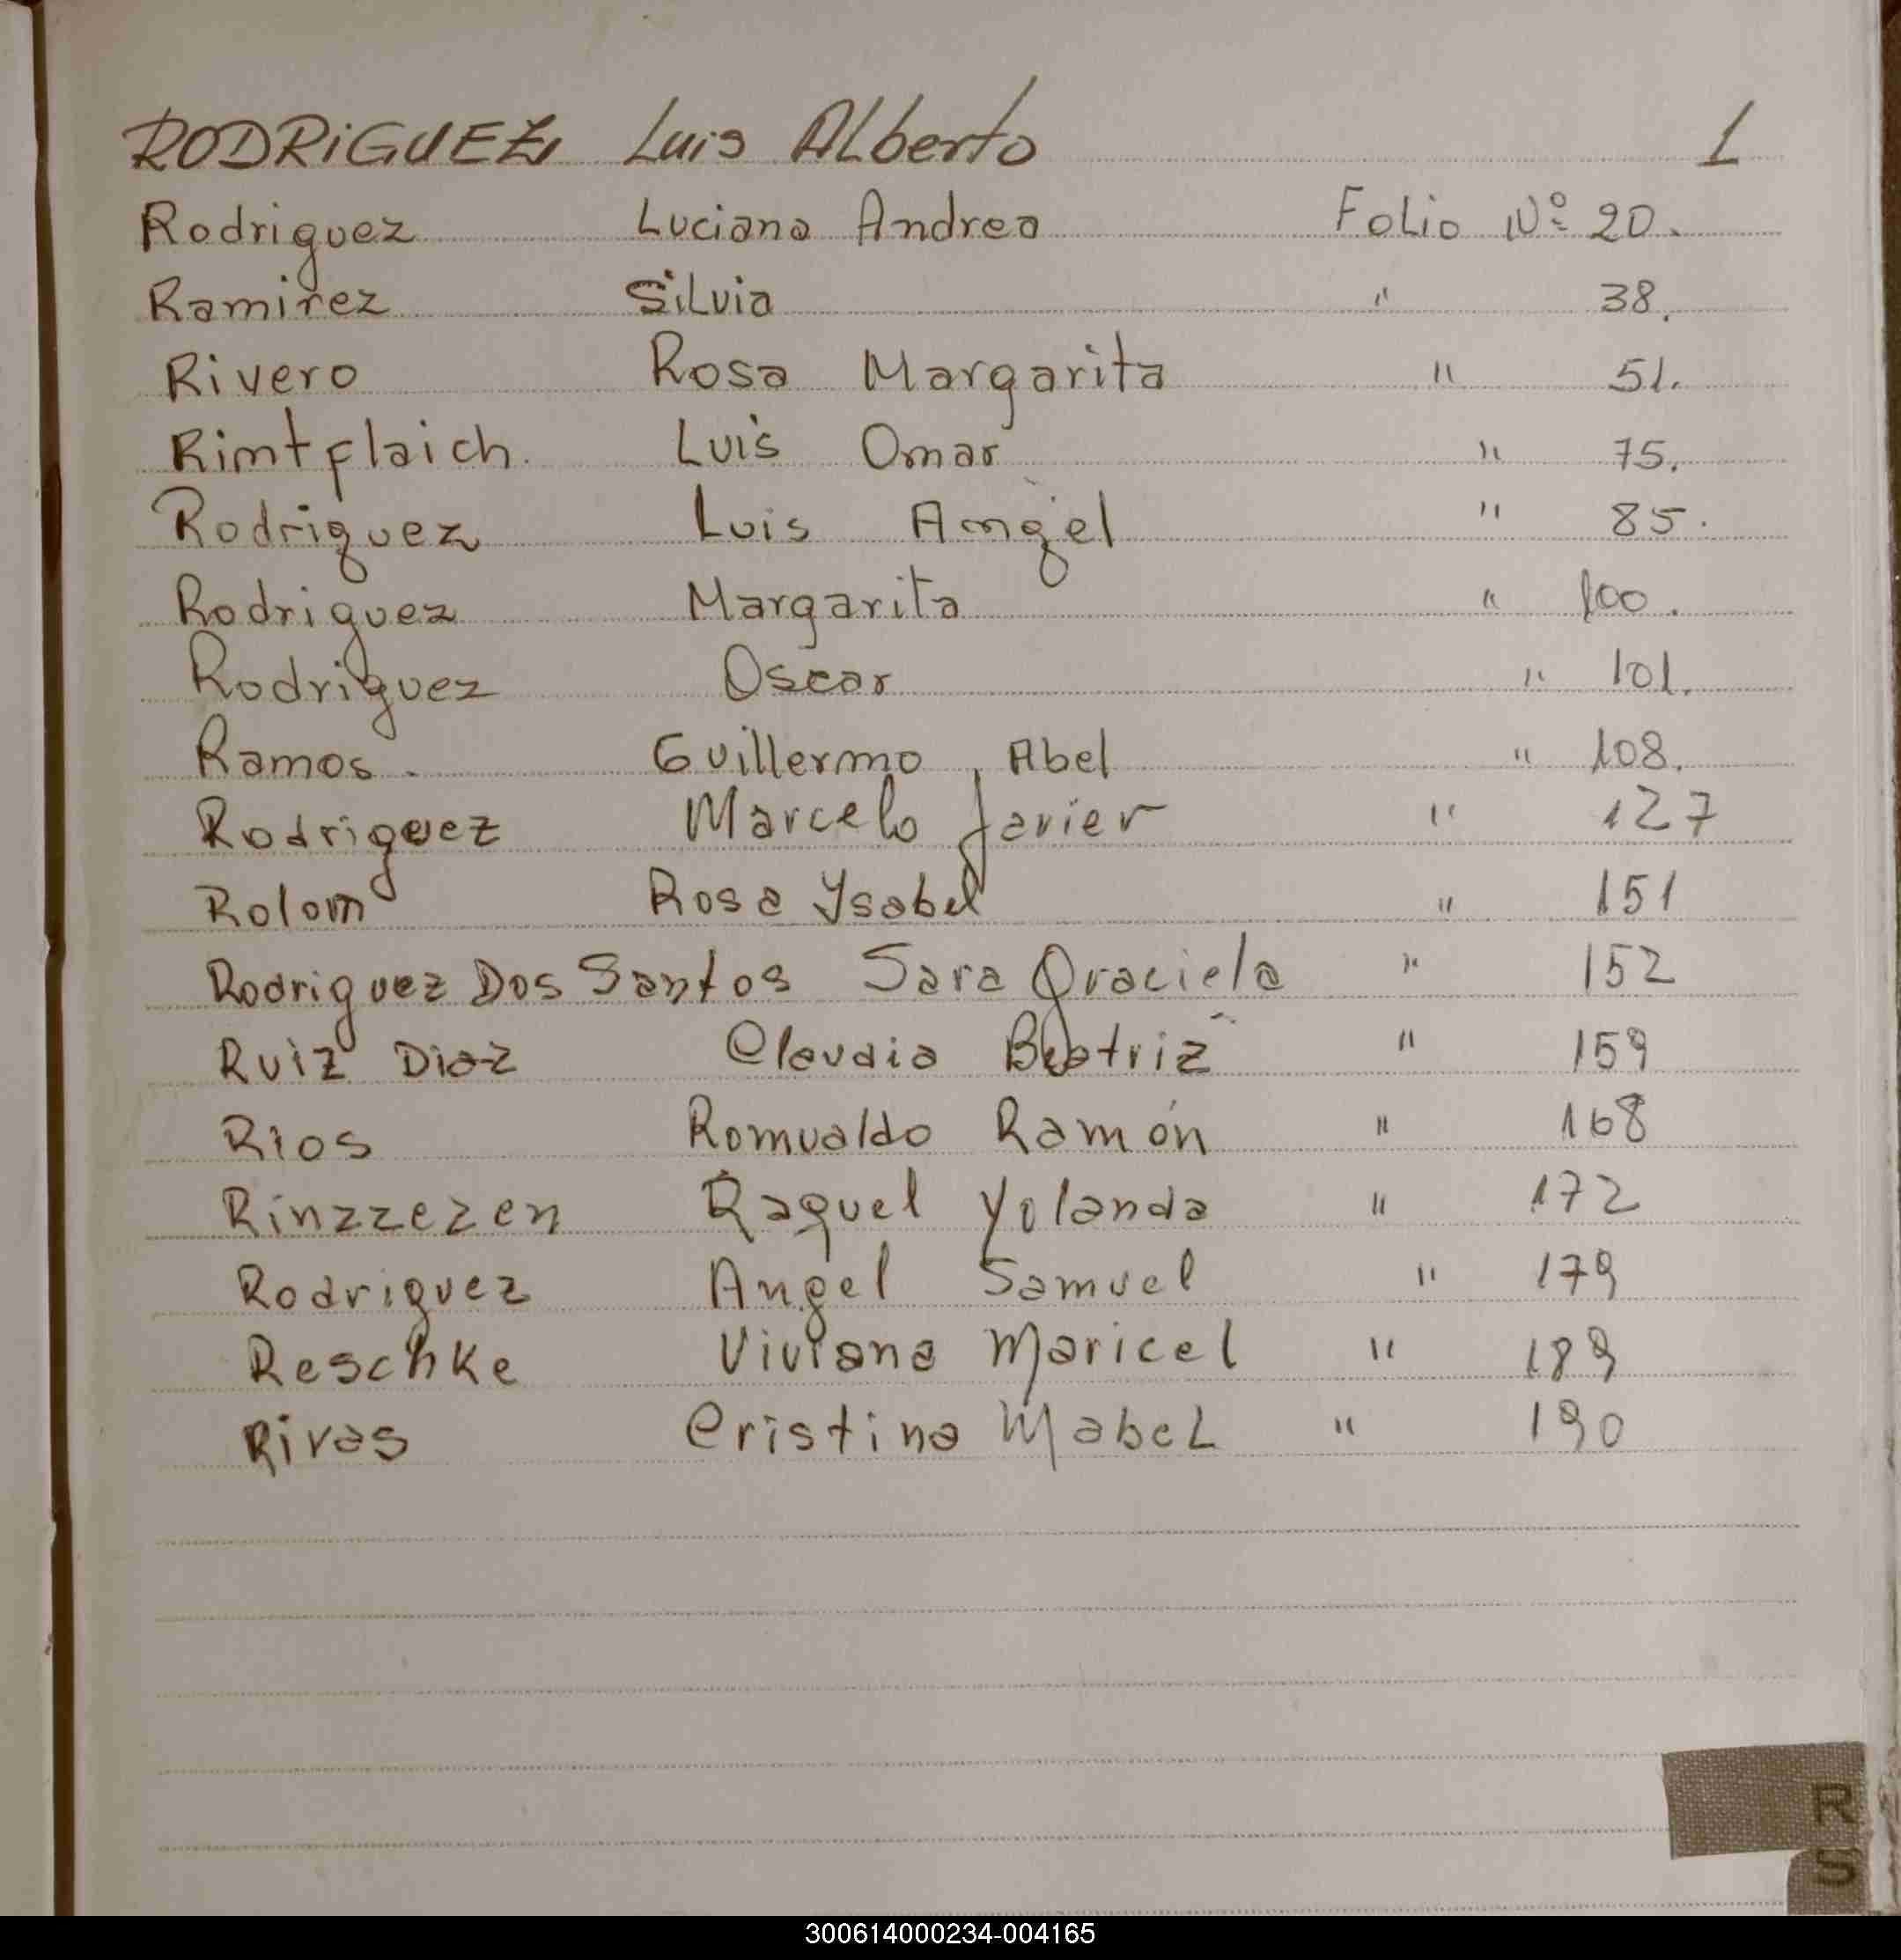 RODRiGUEZ, Luis ALberto 1
Rodriguez Luciana Andrea Folio Nº 20.
Ramirez SiLvia " 38.
Rivero Rosa Margarita " 51.
Rimtflaich. Luis Omar " 75.
Rodriguez Luis Angel " 85.
Rodriguez Margarita " 100.
Rodriguez Oscar " 101.
Ramos. Guillermo, Abel " 108.
Rodriguez Marcelo Javier " 127
Rolom Rosa Ysabel " 151
Rodriguez Dos Santos Sara Graciela " 152
Ruiz Diaz Claudia Beatriz " 159
Rios Romualdo Ramón " 168
Rinzzezen Raquel Yolanda " 172
Rodriguez Angel Samuel " 179
Reschke Viviana Maricel " 189
Rivas Cristina MabeL " 190
R
S
300614000234-004165